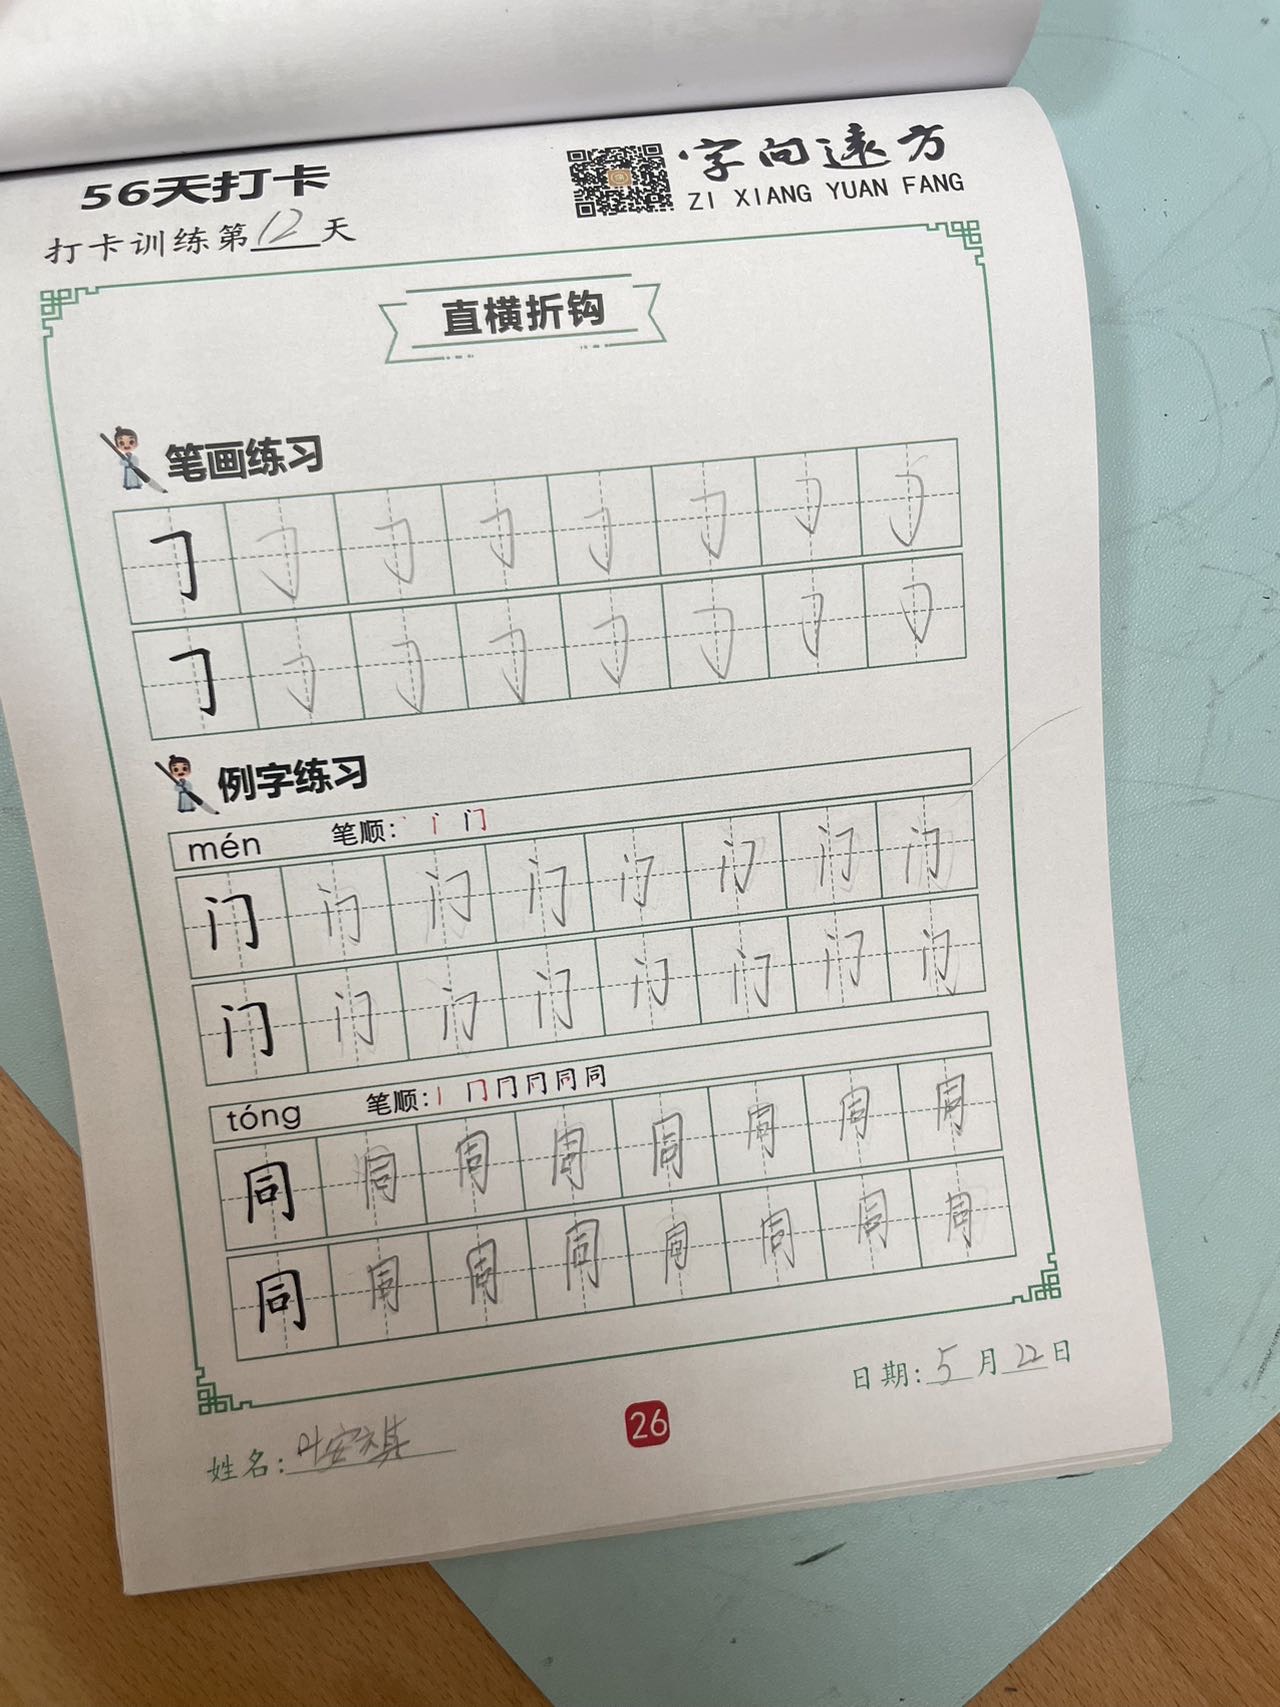 56天打卡
字向远方
ZI XIANG YUAN FANG
打卡训练第12天
直横折钩
笔画练习
𠃌 𠃌 𠃌 𠃌 𠃌 𠃌 𠃌 𠃌
𠃌 𠃌 𠃌 𠃌 𠃌 𠃌 𠃌 𠃌
例字练习
mén 笔顺: 丶 门
门 门 门 门 门 门 门 门
门 门 门 门 门 门 门 门
tóng 笔顺: 丨 冂 同
同 同 同 同 同 同 同 同
同 同 同 同 同 同 同 同
日期:5月22日
26
姓名:叶安祺